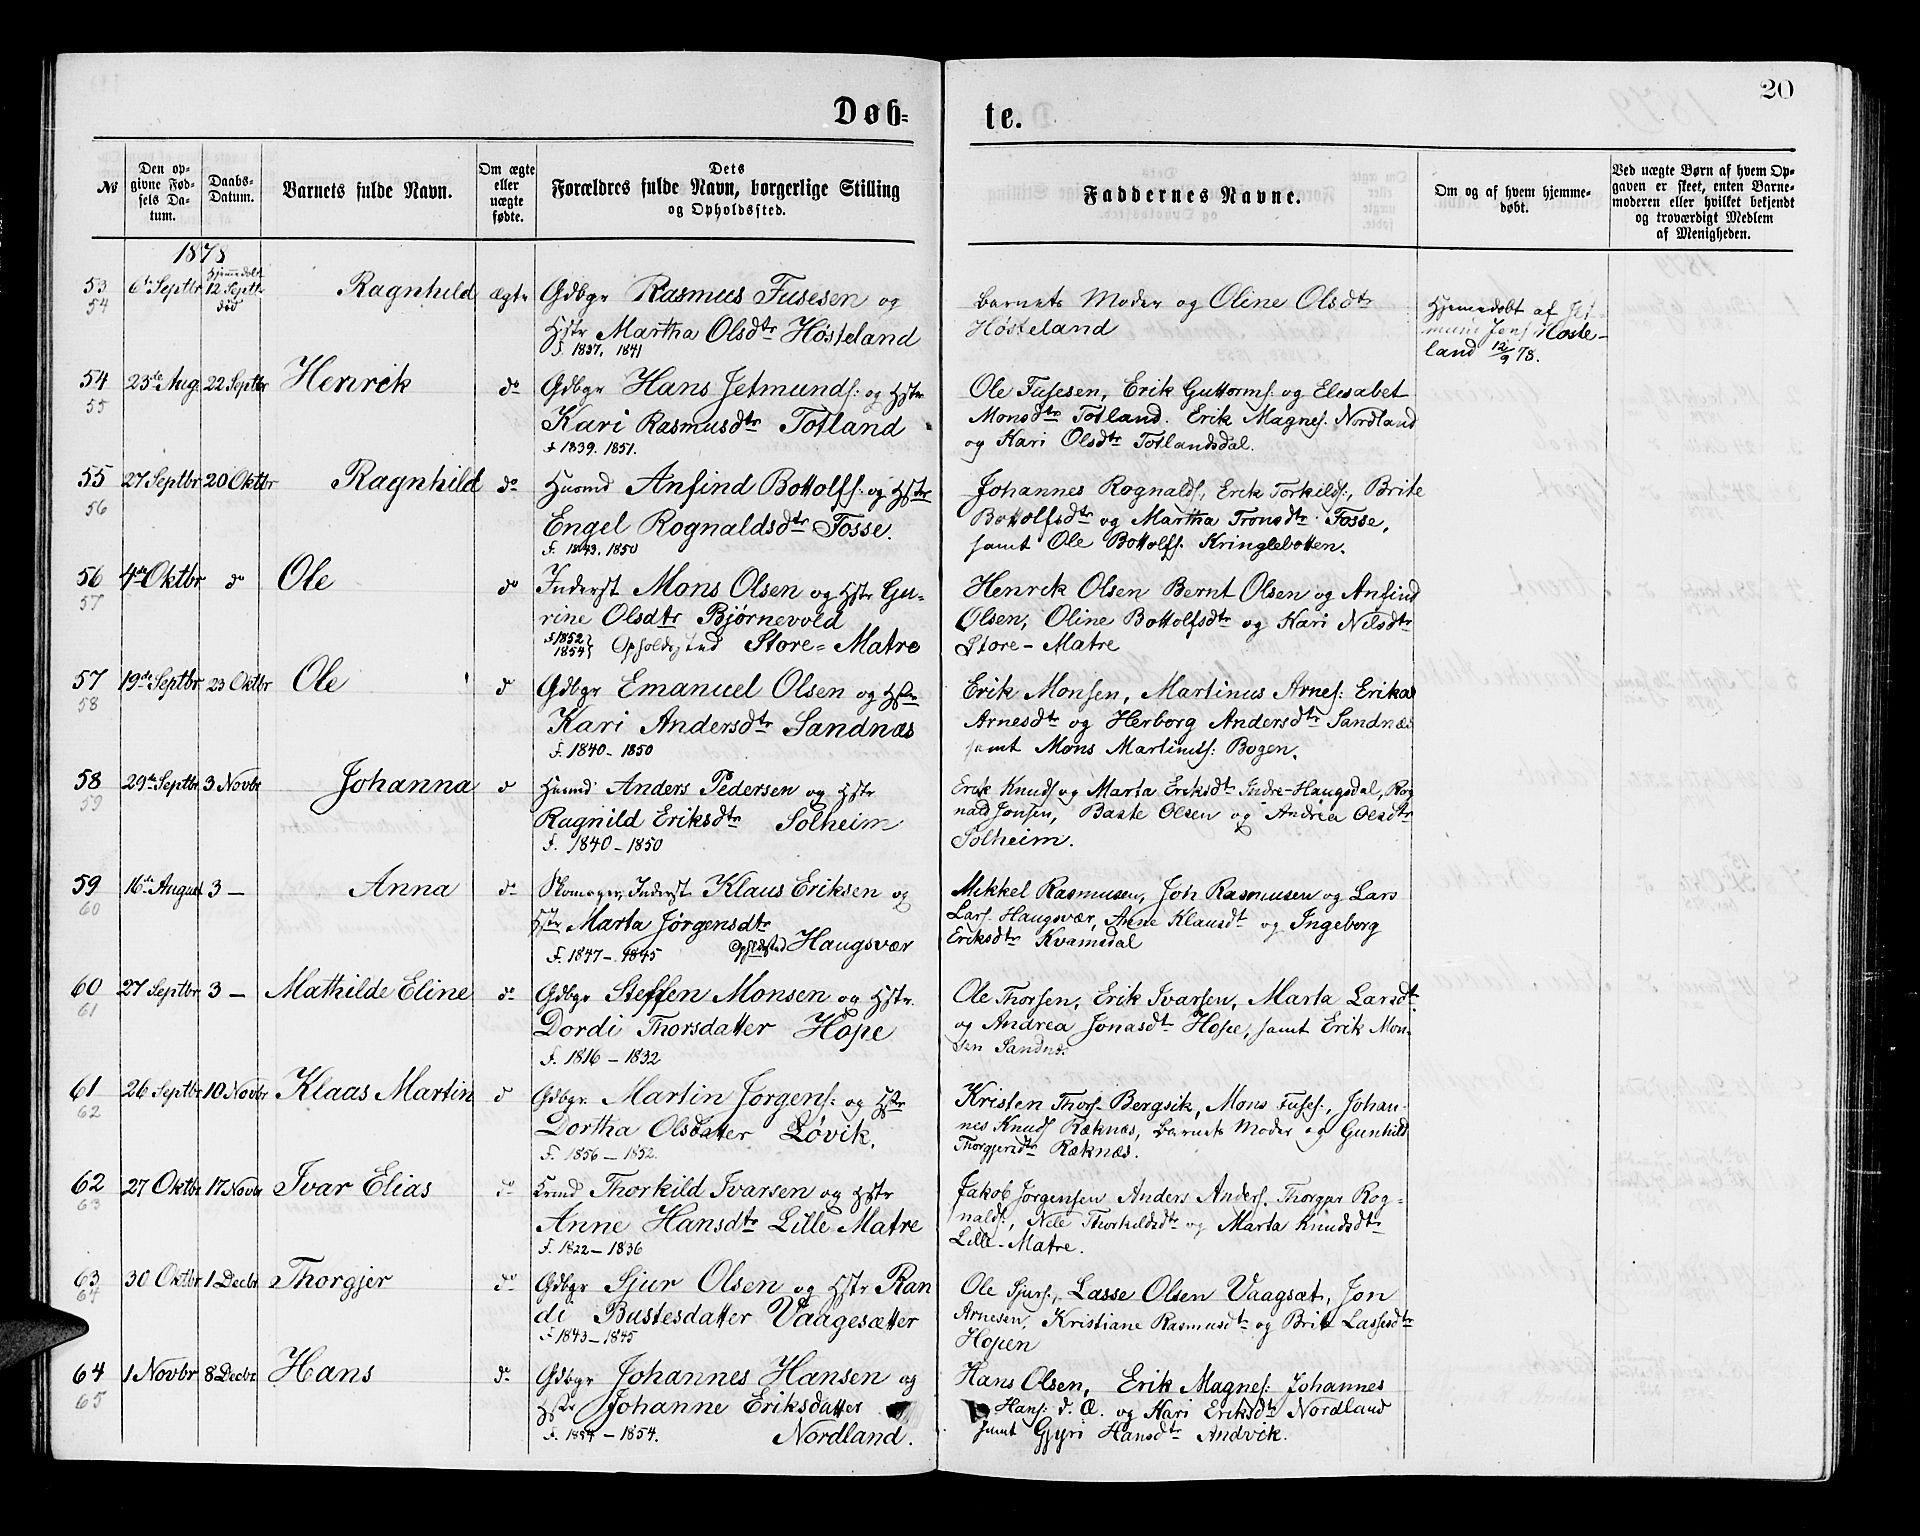 20
Døb= te.
№ | Den opgivne Fødsels Datum. | Daabs-Datum. | Barnets fulde Navn. | Om ægte eller uægte fødte. | Dets Forældres fulde Navn, borgerlige Stilling og Opholdssted. | Faddernes Navne. | Om og af hvem hjemmedøbt. | Ved uægte Børn af hvem Opgaven er skeet, enten Barnemoderen eller hvilket bekjendt og troværdigt Medlem af Menigheden.
1878
Hjemmedøbt
53 6te Septbr 12 Septbr Ragnhild ægte Gdbgr Rasmus Fusesen og
54 død Hstr Martha Olsdtr Høsteland
f. 1837, 1841
Barnets Moder og Oline Olsdtr
Høsteland
Hjemmedøbt af Jetmund Jens Hosteland 12/9 78.
54 23de Aug. 22 Septbr Henrik do Gdbgr Hans Jetmunds: og Hstr
55 Kari Rasmusdtr Totland
f 1839. 1851.
Ole Fusesen, Erik Guttorms: og Elesabet
Monsdtr Totland. Erik Magnes. Nordland
og Kari Olsdtr Totlandsdal.
55 27 Septbr 20 Oktbr Ragnhild do Husmd Anfind Bottolfs: og Hstr
56 Engel Rognaldsdtr Fosse.
f. 1843. 1850
Johannes Rognalds, Erik Torkilds:, Brite
Bottolfsdtr og Martha Tronsdtr Fosse,
samt Ole Bottolfs. Kringlebotten.
56 4de Oktbr do Ole do Inderst Mons Olsen og Hstr Gu-
57 rine Olsdtr Bjørnevold
f 1852 1854 Opholdssted Store=Matre
Henrik Olsen Bernt Olsen og Anfind
Olsen, Oline Bottolfsdtr og Kari Nilsdtr
Store-Matre
57 19de Septbr 23 Oktbr Ole do Gdbgr Emanuel Olsen og Hstr
58 Kari Andersdtr Sandnæs
f. 1840 - 1850
Erik Monsen, Martinus Arnes: Erikas
Arnesdtr og Herborg Andersdtr Sandnæs
samt Mons Martinus: Bogen.
58 29de Septbr 3 Novbr Johanna do Husmd Anders Pedersen og Hstr
59 Ragnild Eriksdtr Solheim
f. 1840 - 1850
Erik Knuds og Marta Eriksdtr Indre-Haugsdal, Rog
nald Jonsen, Baste Olsen og Andrea Olsdtr
Solheim.
59 16de August 3 — Anna do Skomager, Inderst Klaus Eriksen og
60 Hstr Marta Jørgensdtr
f. 1847 - 1845 Opholdssted Haugsvær
Mikkel Rasmusen, Joh Rasmusen og Lars
Lars. Haugsvær, Anne Klausdt og Ingeborg
Eriksdtr Kvamsdal
60 27 Septbr 3 — Mathilde Eline do Gdbgr Steffen Monsen og Hstr.
61 Dordi Thorsdatter Hope
f. 1816 - 1832
Ole Thorsen, Erik Ivarsen, Marta Larsdt
og Andrea Jonasdt Hope, samt Erik Mon-
sen Sandnæs
61 26 Septbr 10 Novbr Klaas Martin do Gdbgr Martin Jørgens: og Hstr
62 Dortha Olsdatter Løvik.
f. 1856 - 1852.
Kristen Thors. Bergsvik, Mons Fuses:, Johan-
nes Knuds Ræknæs, Barnets Moder og Gunhild
Thorgjersdtr Ræknæs.
62 27 Oktbr 17 Novbr Ivar Elias do Thorkild Ivarsen og Hstr
63 Anne Hansdtr Lille Matre
f. 1822 - 1836
Jakob Jørgensen Anders Anders. Thorger Rog-
nalds:, Nele Thorkildsdtr og Marta Knudsdtr
Lille-Matre.
63 30 Oktbr 1 Decbr Thorgjer do Gdbgr Sjur Olsen og Hstr Ran
64 di Bustesdatter Vaagesætter
f 1843 - 1845
Ole Sjurs., Lasse Olsen Vaagsæt, Jon
Arnesen, Kristiane Rasmusdt og Brit Lassesdtr
Hopen
64 1 Novbr 8 Decbr Hans do Gdbgr Johannes Hansen og
65 Hstr Johanne Eriksdatter
f. 1854 - 1854. Nordland.
Hans Olsen, Erik Magnes: Johannes
Hans: d. Æ. og Kari Eriksdtr Nordland
samt Gjyri Hansdtr Andvik.